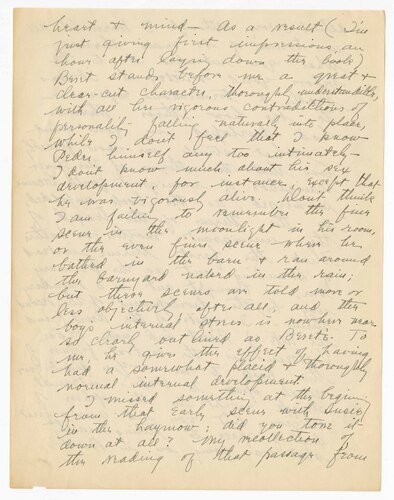 heart & mind— As a result (I'm
just giving first impressions an
hour after laying down the book)
Beret stands before me a great &
clear-cut character, thoroughly understandable,
with all her vigorous contradictions of
personality falling naturally into place,
while I don't feel that I know
Peder himself any too intimately—
I don't know much about his sex
development, for instance, except that
he was vigorously alive. Don't think
I am failing to remember the fine
scene in the moonlight in his room,
or the even finer scene where he
bathed in the barn & ran around
the barnyard naked in the rain;
but these scenes are told more or
less objectively, after all, and the
boy's internal stress is nowhere near
so clearly outlined as Beret's. To
me, he gives the effect of having
had a somewhat placid & thoroughly
normal internal development.
I missed something at the beginning
from that early scene with Susie
in the haymow; did you tone it
down at all? My recollection of
the reading of that passage from